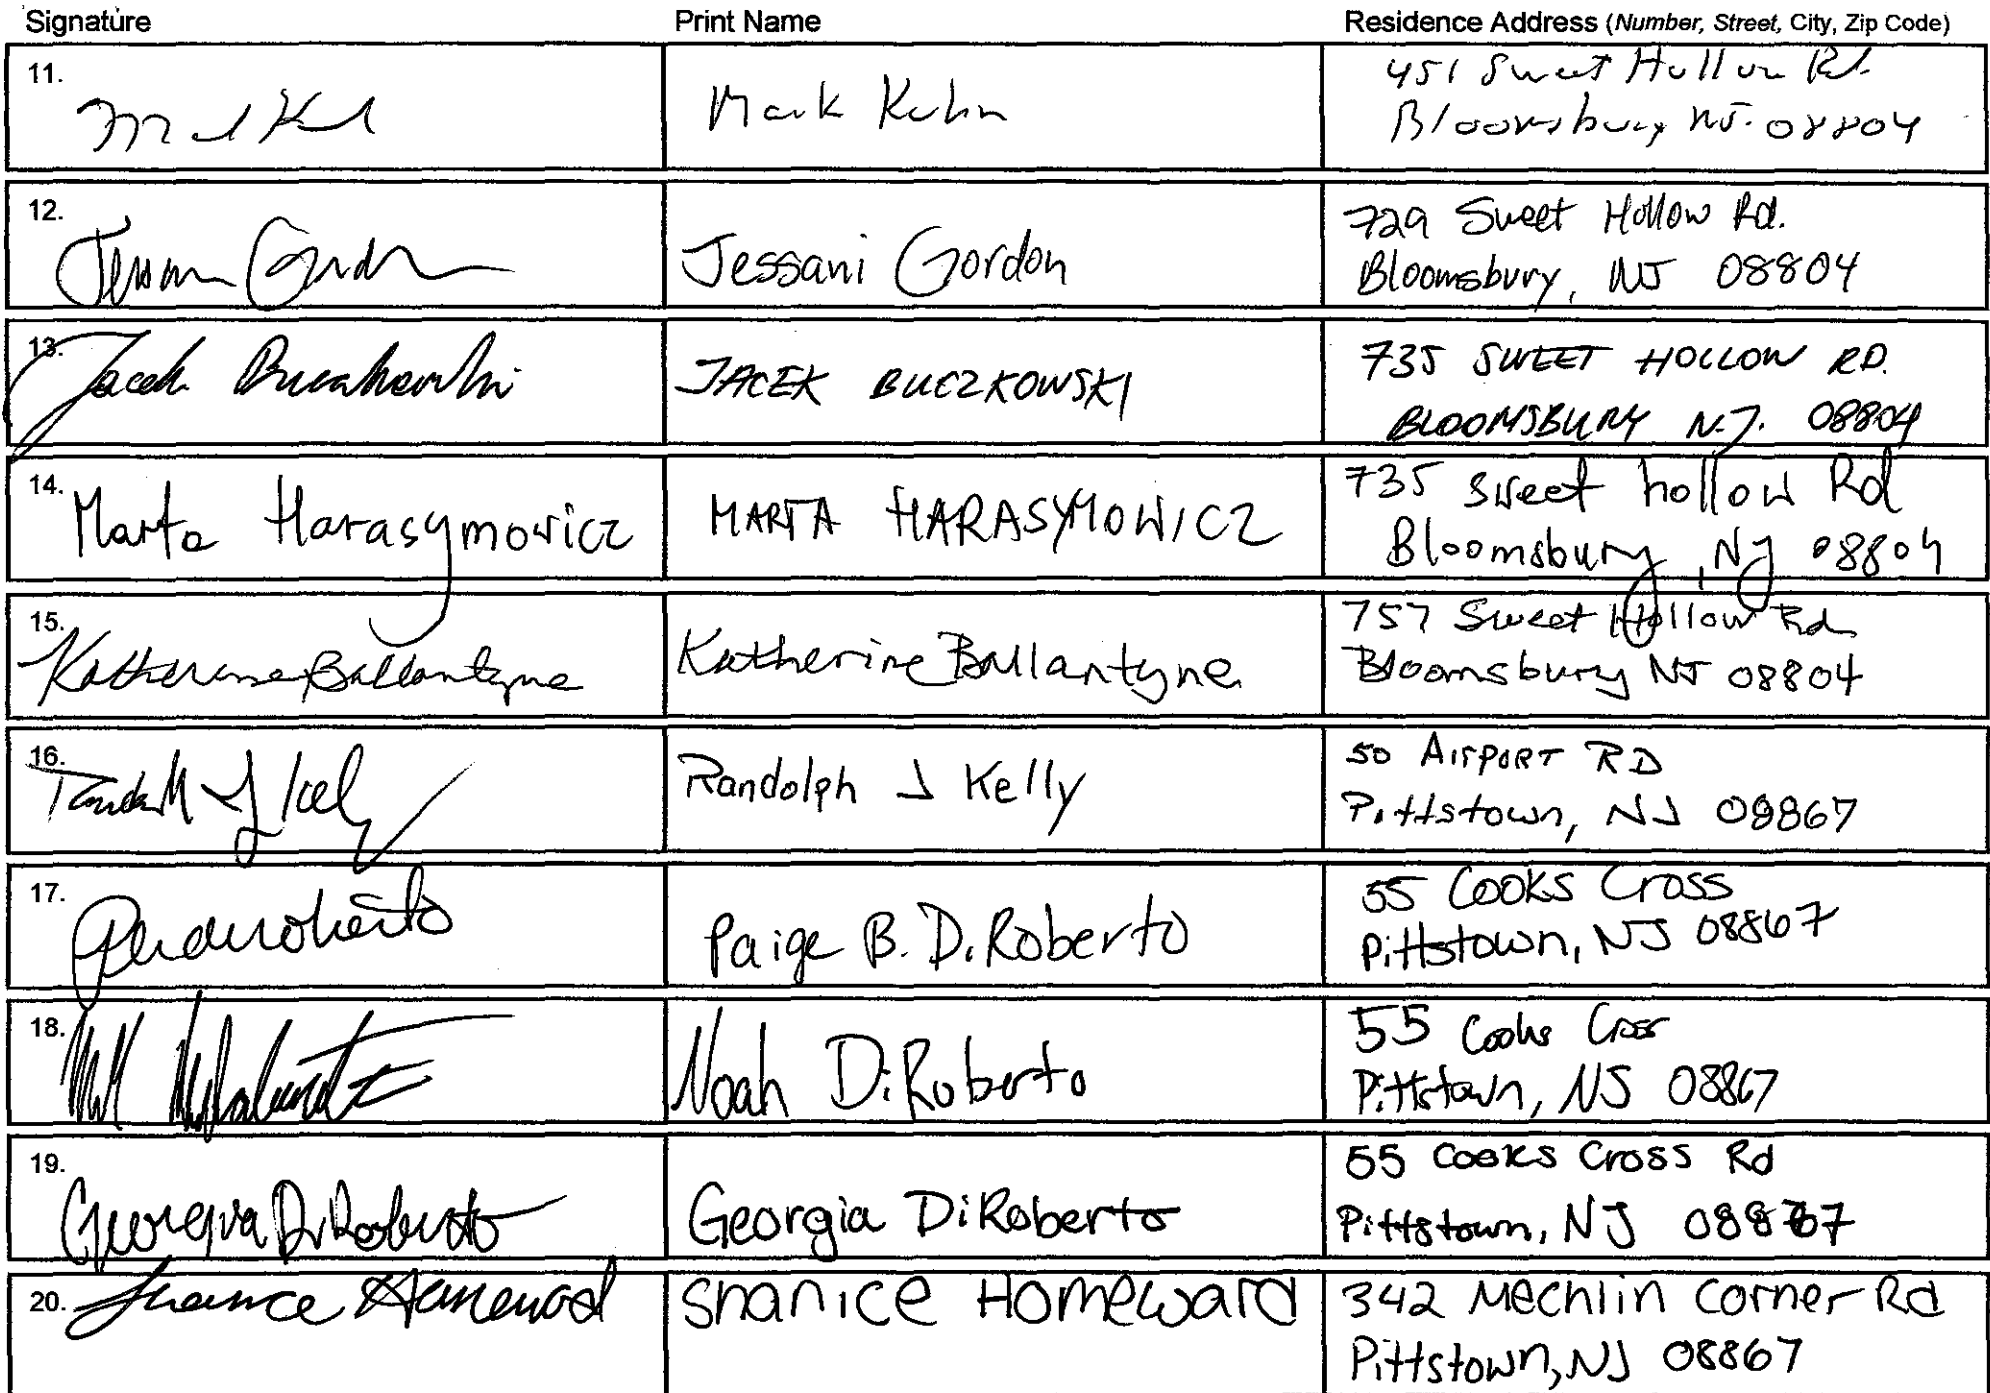 Signature Print Name Residence Address (Number, Street, City, Zip Code)
11. Mark Kuhn 451 Sweet Hollow Rd.
Bloomsbury NJ. 08804
12. Jessani Gordon 729 Sweet Hollow Rd.
Bloomsbury, NJ 08804
13. Jacek Buczkowski JACEK BUCZKOWSKI 735 SWEET HOLLOW RD.
BLOOMSBURY N.J. 08804
14. Marta Harasymowicz MARTA HARASYMOWICZ 735 sweet hollow Rd
Bloomsbury, NJ 08804
15. Katherine Ballantyne Katherine Ballantyne 757 Sweet Hollow Rd
Bloomsbury NJ 08804
16. Randolph J Kelly 50 AIRPORT RD
Pittstown, NJ 08867
17. Paige B. DiRoberto 55 Cooks Cross
Pittstown, NJ 08867
18. Noah DiRoberto 55 Cooks Cross
Pittstown, NJ 08867
19. Georgia DiRoberto Georgia DiRoberto 55 Cooks Cross Rd
Pittstown, NJ 08867
20. Shanice Homeward 342 Mechlin Corner Rd
Pittstown, NJ 08867